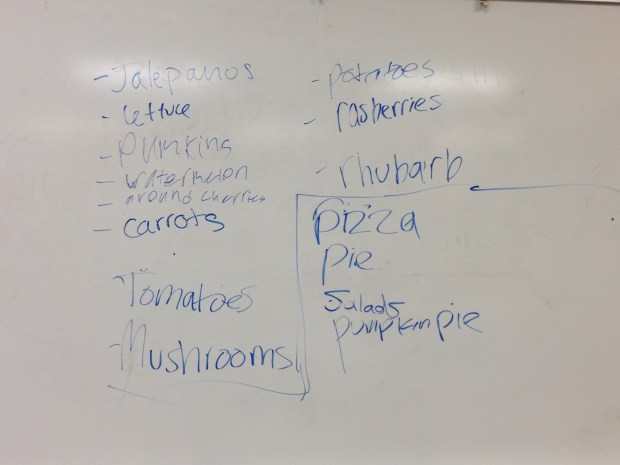 - Jalepanos
- Lettuce
- Pumkins
- watermelon
- ground cherries
- carrots
Tomatoes
- Mushrooms
- potatoes
- rasberries
- rhubarb
pizza
pie
Salads
pumpkin pie